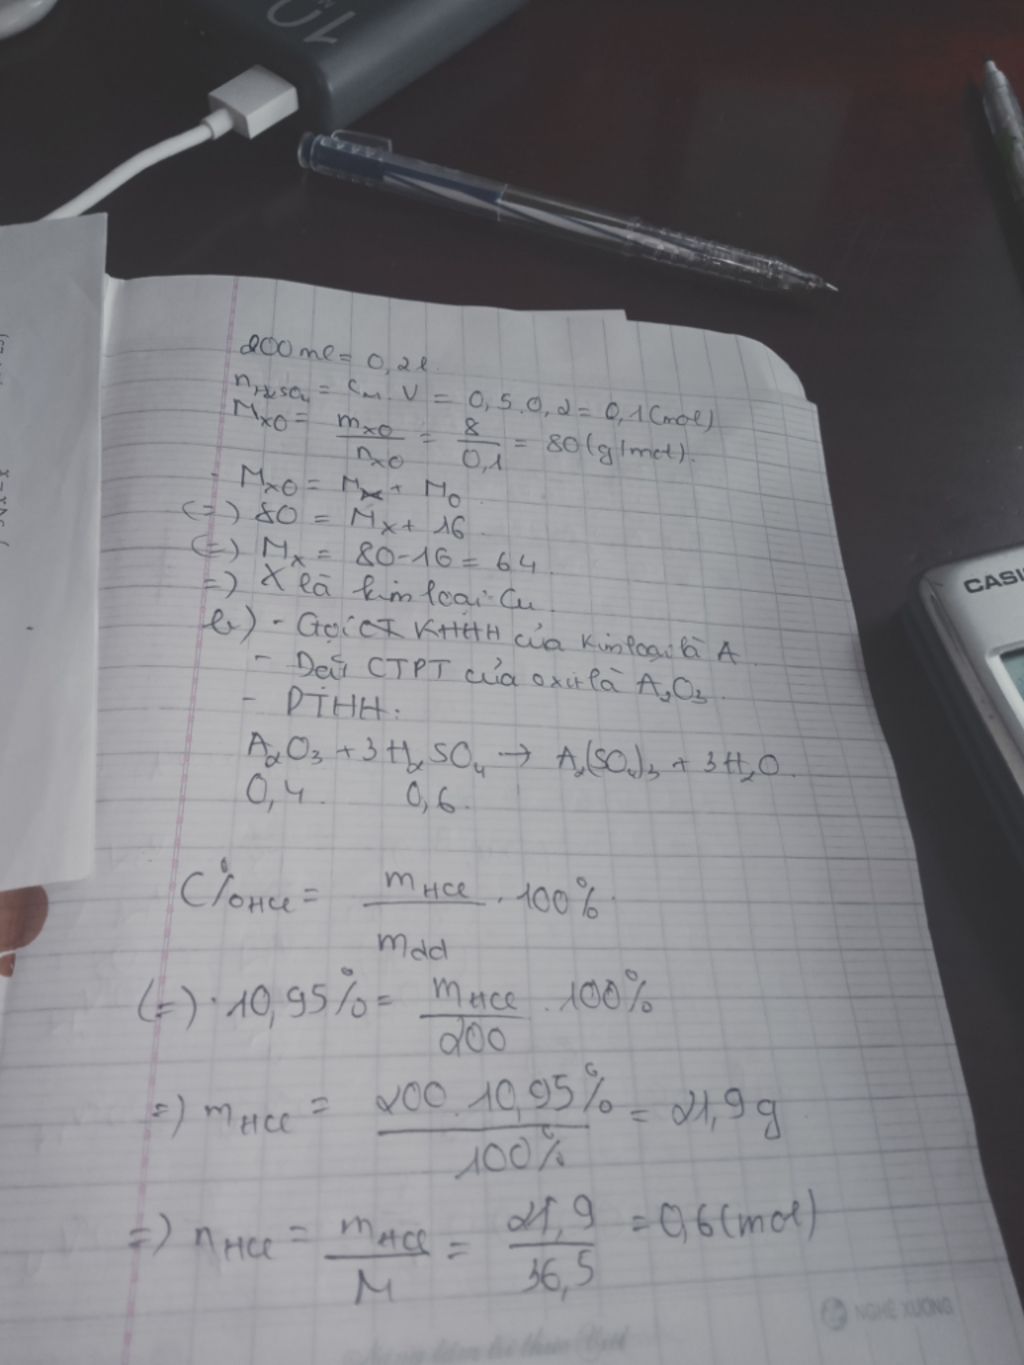 200ml = 0,2l.
nH2SO4 = CM.V = 0,5.0,2 = 0,1(mol)
MXO = mXO/nXO = 8/0,1 = 80(g/mol).
- MXO = MX + MO
(=) 80 = MX + 16
(=) MX = 80-16 = 64
=) X là kim loại Cu
b) - Gọi CT KHHH của kim loại là A.
- CTPT của oxit là A2O3.
- PTHH:
A2O3 + 3H2SO4 → A2(SO4)3 + 3H2O.
0,4. 0,6.
C%HCl = mHCl/mdd . 100%
(=) 10,95% = mHCl/200 . 100%
=) mHCl = 200.10,95%/100% = 21,9g
=) nHCl = mHCl/M = 21,9/36,5 = 0,6(mol)
CASI
NGHÊ XUÔNG